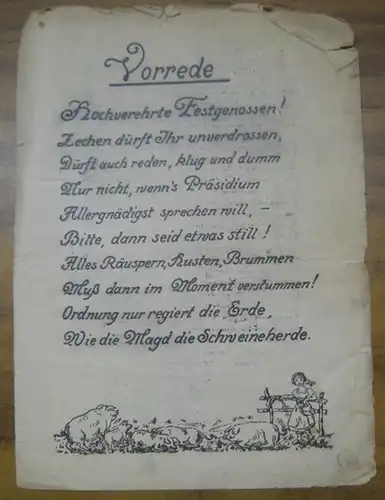 Vorrede
Hochverehrte Festgenossen!
Zechen dürft Ihr unverdrossen,
Dürft auch reden, klug und dumm
Nur nicht, wenn's Präsidium
Allergnädigst sprechen will, –
Bitte, dann seid etwas still!
Alles Räuspern, Husten, Brummen
Muß dann im Moment verstummen!
Ordnung nur regiert die Erde,
Wie die Magd die Schweineherde.